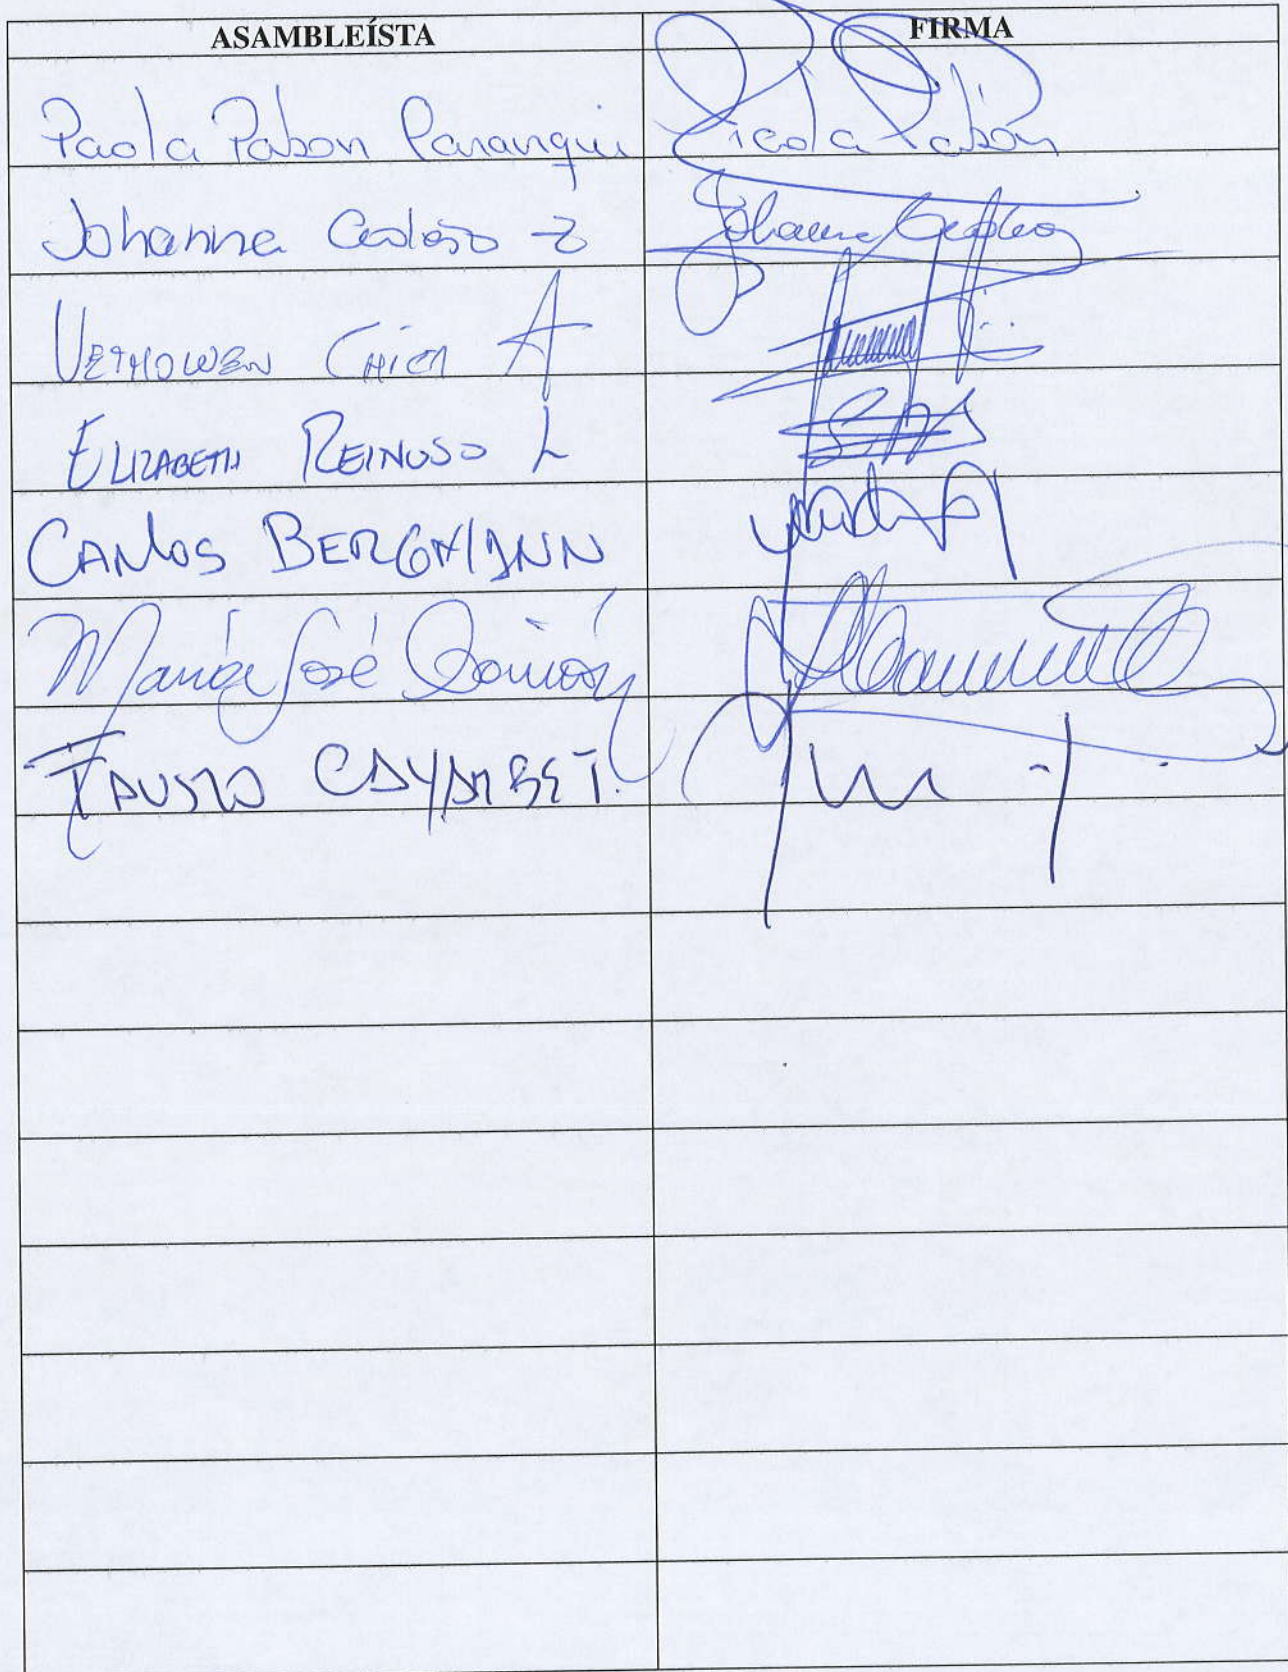 ASAMBLEÍSTA FIRMA
Paola Pabon Paranqui Paola Pabón
Johanna Cedeño Z Johanna Cedeño
VETHOWEN CHICA A
ELIZABETH REINUSO L
CARLOS BERGMANN
María José Carrión
FAUSTO CAYAMBE T.